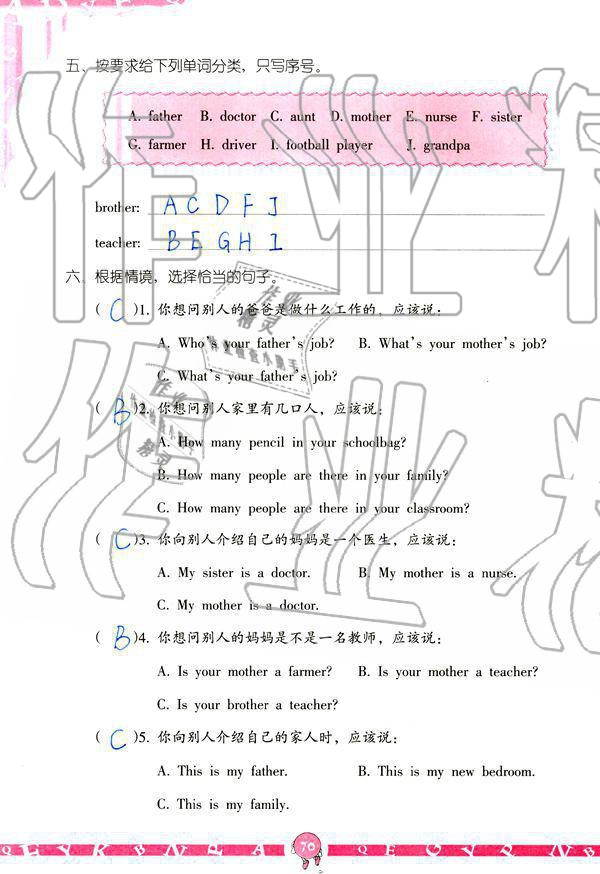 五、按要求给下列单词分类，只写序号。
A. father B. doctor C. aunt D. mother E. nurse F. sister
G. farmer H. driver I. football player J. grandpa
brother: A C D F J
teacher: B E G H I
六、根据情境，选择恰当的句子。
( C )1. 你想问别人的爸爸是做什么工作的，应该说：
A. Who's your father's job? B. What's your mother's job?
C. What's your father's job?
( B )2. 你想问别人家里有几口人，应该说：
A. How many pencil in your schoolbag?
B. How many people are there in your family?
C. How many people are there in your classroom?
( C )3. 你向别人介绍自己的妈妈是一个医生，应该说：
A. My sister is a doctor. B. My mother is a nurse.
C. My mother is a doctor.
( B )4. 你想问别人的妈妈是不是一名教师，应该说：
A. Is your mother a farmer? B. Is your mother a teacher?
C. Is your brother a teacher?
( C )5. 你向别人介绍自己的家人时，应该说：
A. This is my father. B. This is my new bedroom.
C. This is my family.
70